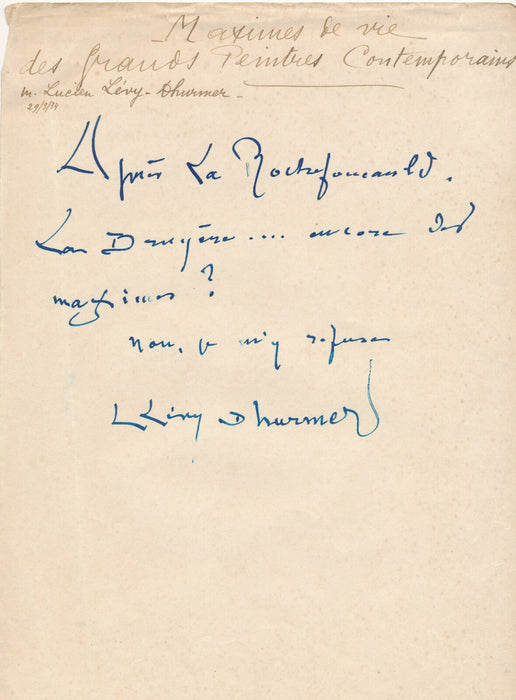 Maximes de vie
des Grands Peintres Contemporains
M. Lucien Lévy-Dhurmer.
29/9/34
Après La Rochefoucauld.
La Bruyère.... encore des
maximes ?
non, je m'y refuse
L Lévy Dhurmer